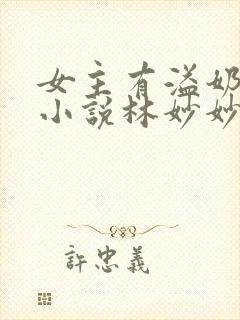 女主有溢奶
小说林妙妙
許忠義